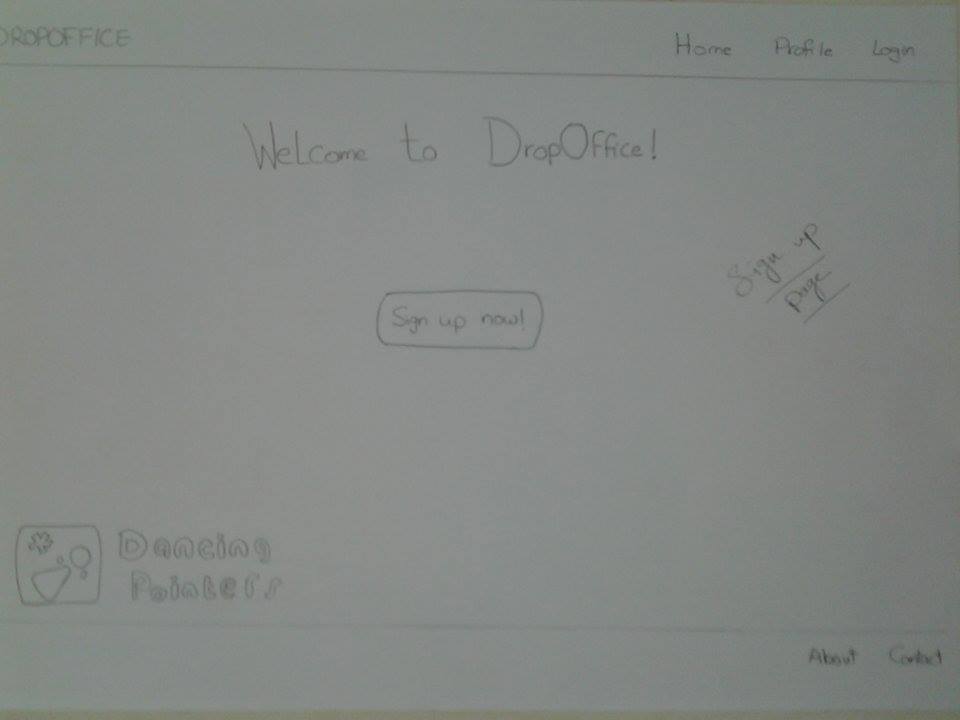 DROPOFFICE
Home Profile Login
Welcome to DropOffice!
Sign up
page
Sign up now!
Dancing
Pointers
About Contact